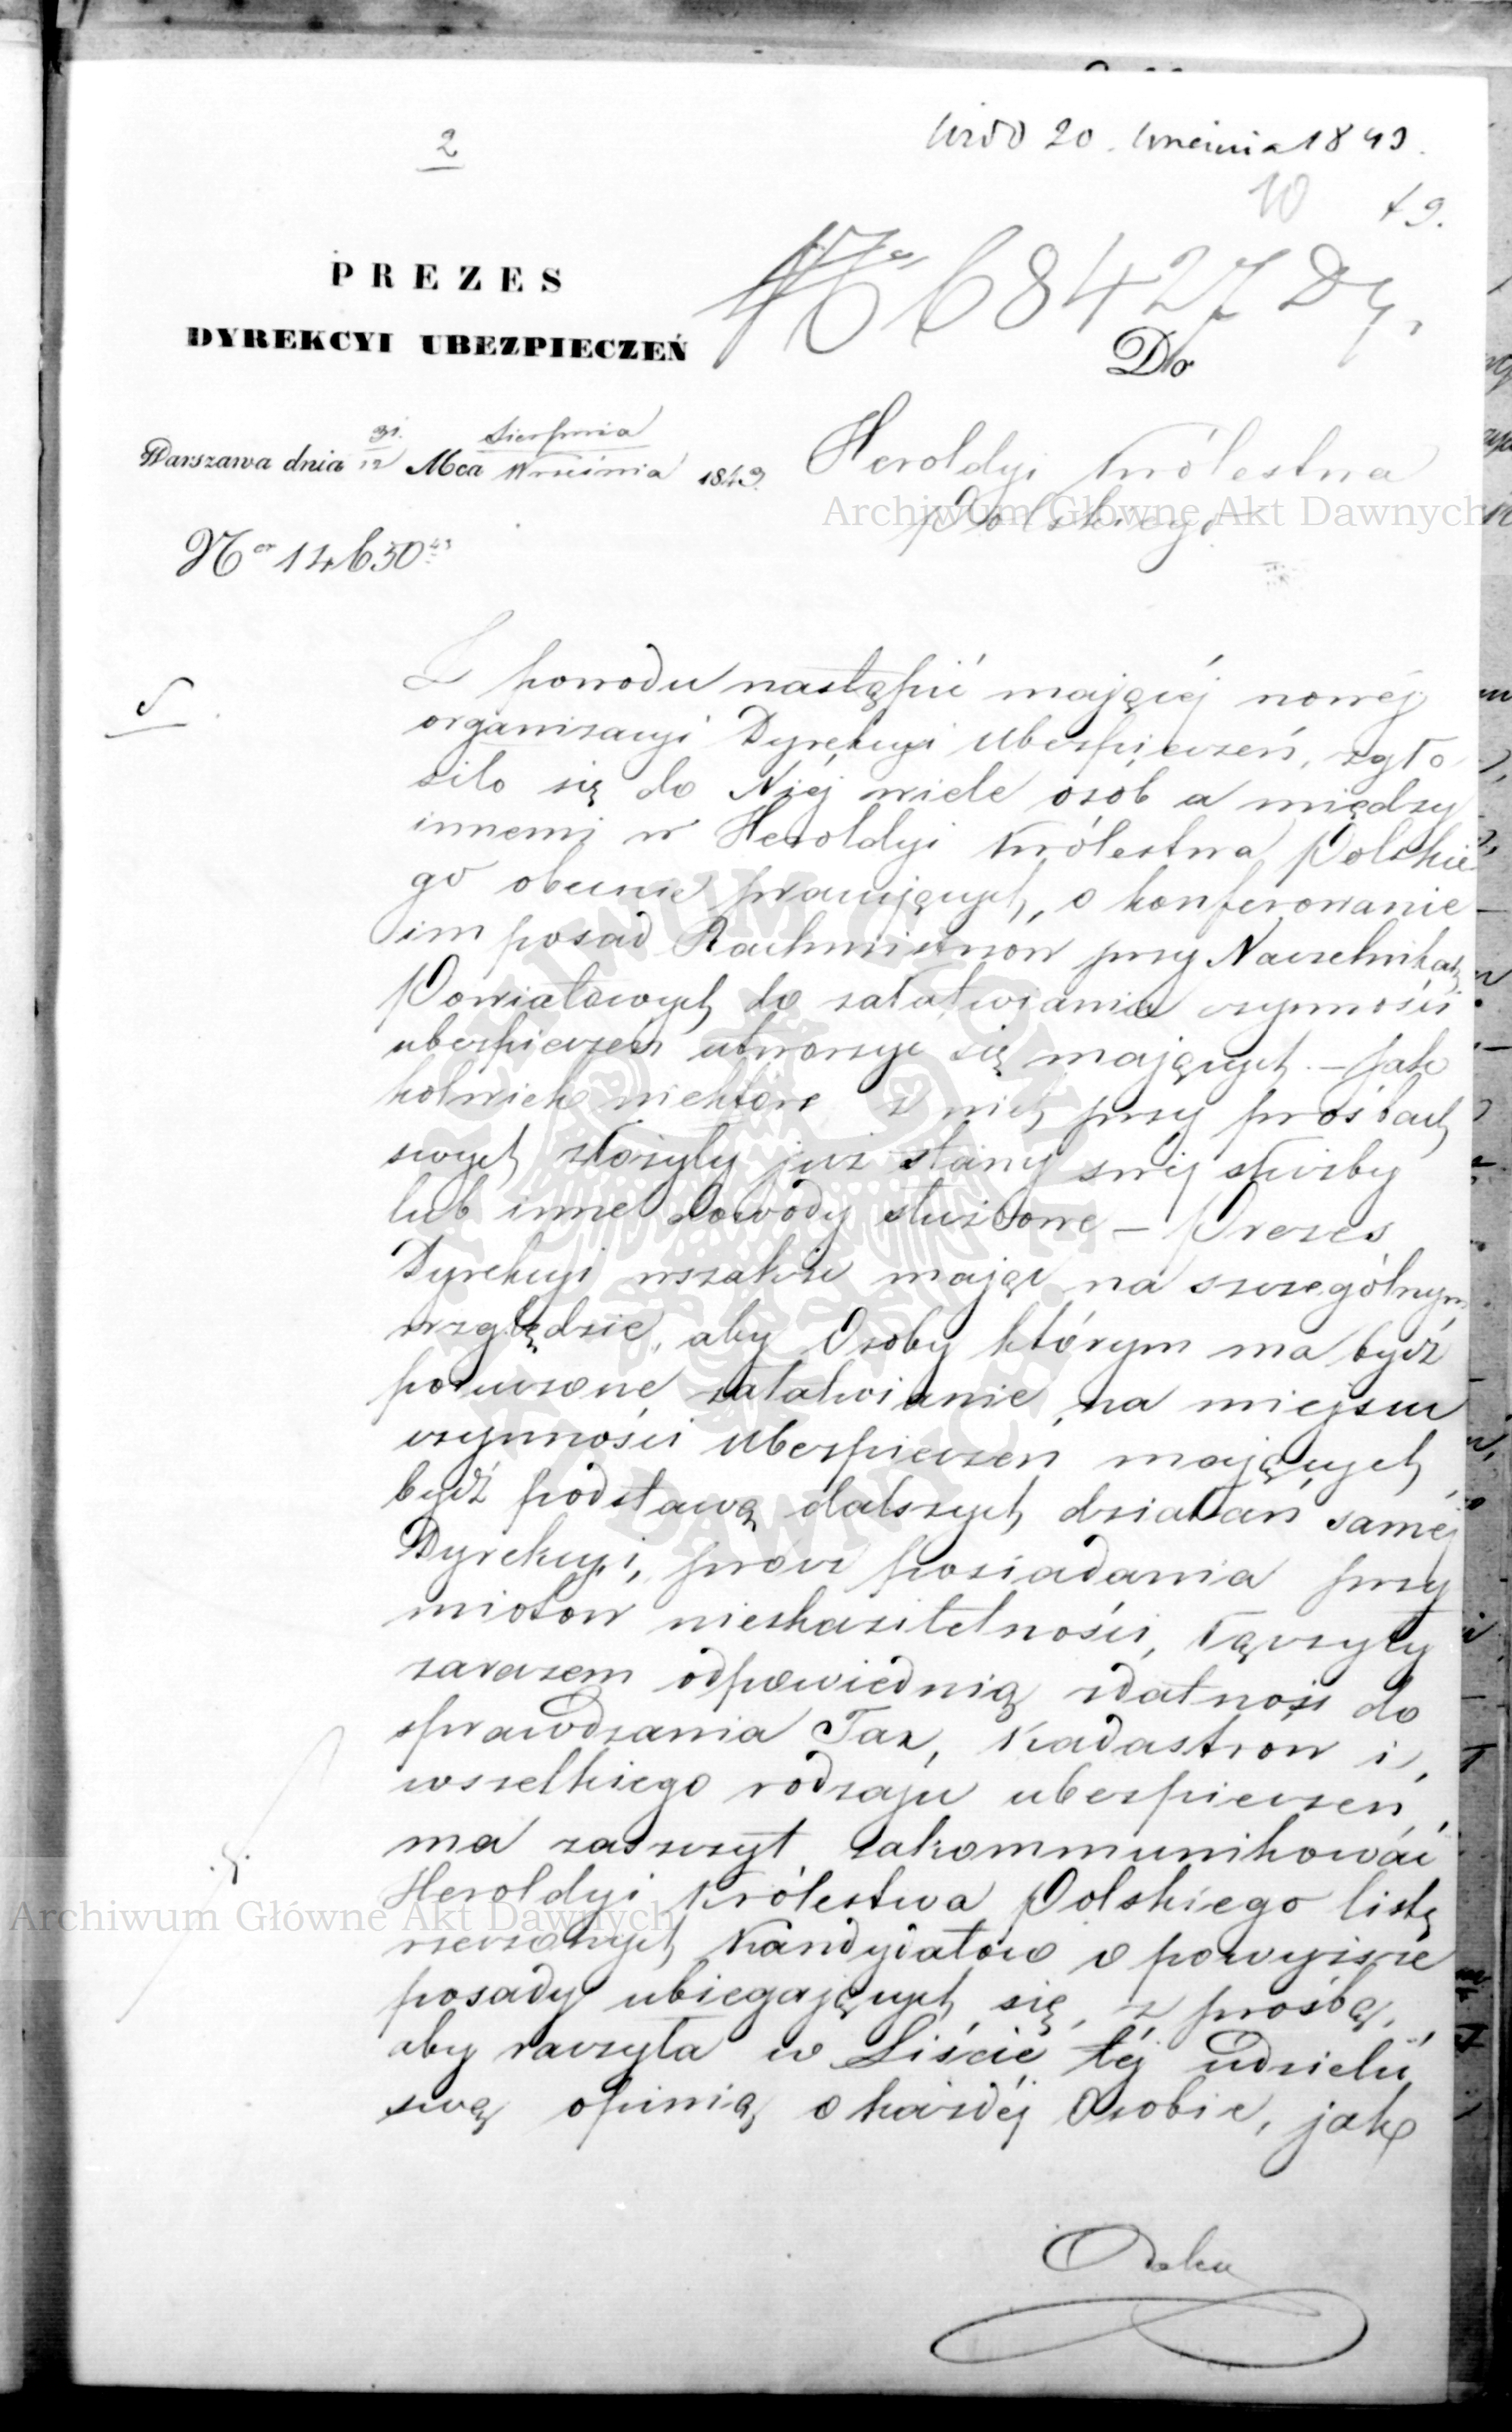 2
20. Września 1843.
10 49.
No 68427
PREZES
DYREKCYI UBEZPIECZEŃ
Do
Warszawa dnia 31/12 Mca Sierpnia/Września 1843.
Heroldyi Królestwa
Polskiego
Nr 14630
Z powodu nastąpić mającéj nowéj
organizacyi Dyrekcyi Ubezpieczeń, zgło
siło się do Niéj wiele osób a między
innemi w Heroldyi Królestwa Polskie
go obecnie pracujących, o konferowanie
im posad Rachmistrzów przy Naczelnikach
Powiatowych do załatwiania czynności
ubezpieczeń utworzyć się mających. – Jak
kolwiek niektóre z nich przy prośbach
swych złożyły już stany swéj służby
lub inne dowody służbowe – Prezes
Dyrekcyi wszakże mając na szczególnym
względzie, aby Osoby którym ma bydź
poruczone załatwianie na miejscu
czynności Ubezpieczeń mających
bydź podstawą dalszych działań saméj
Dyrekcyi, prócz posiadania przy
miotów nieskazitelności, łączyły
zarazem odpowiednią zdatność do
sprawdzania Tax, Kadastrów i
wszelkiego rodzaju ubezpieczeń,
ma zaszczyt zakommunikować
Heroldyi Królestwa Polskiego listę
rzeczonych Kandydatów o powyższe
posady ubiegających się, z prośbą,
aby raczyła w Liście téj udzielić
swą opinią o każdéj Osobie, jak
Archiwum Główne Akt Dawnych
Archiwum Główne Akt Dawnych
ARCHIWUM GŁÓWNE AKT DAWNYCH